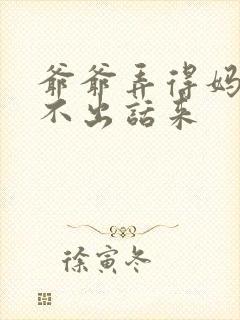 爷爷弄得妈
不出话来
徐寅冬